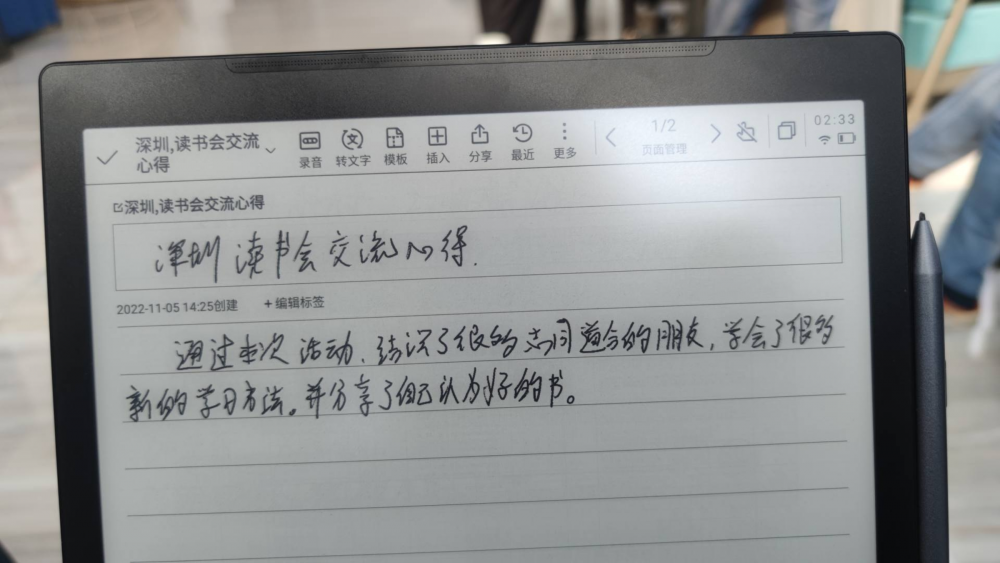 深圳,读书会交流
心得
录音 转文字 模板 插入 分享 最近 更多
1/2
页面管理
02:33
深圳,读书会交流心得
深圳 读书会交流心得.
2022-11-05 14:25创建 +编辑标签
通过本次活动、结识了很多志同道合的朋友，学会了很多
新的学习方法。并分享了自己认为好的书。